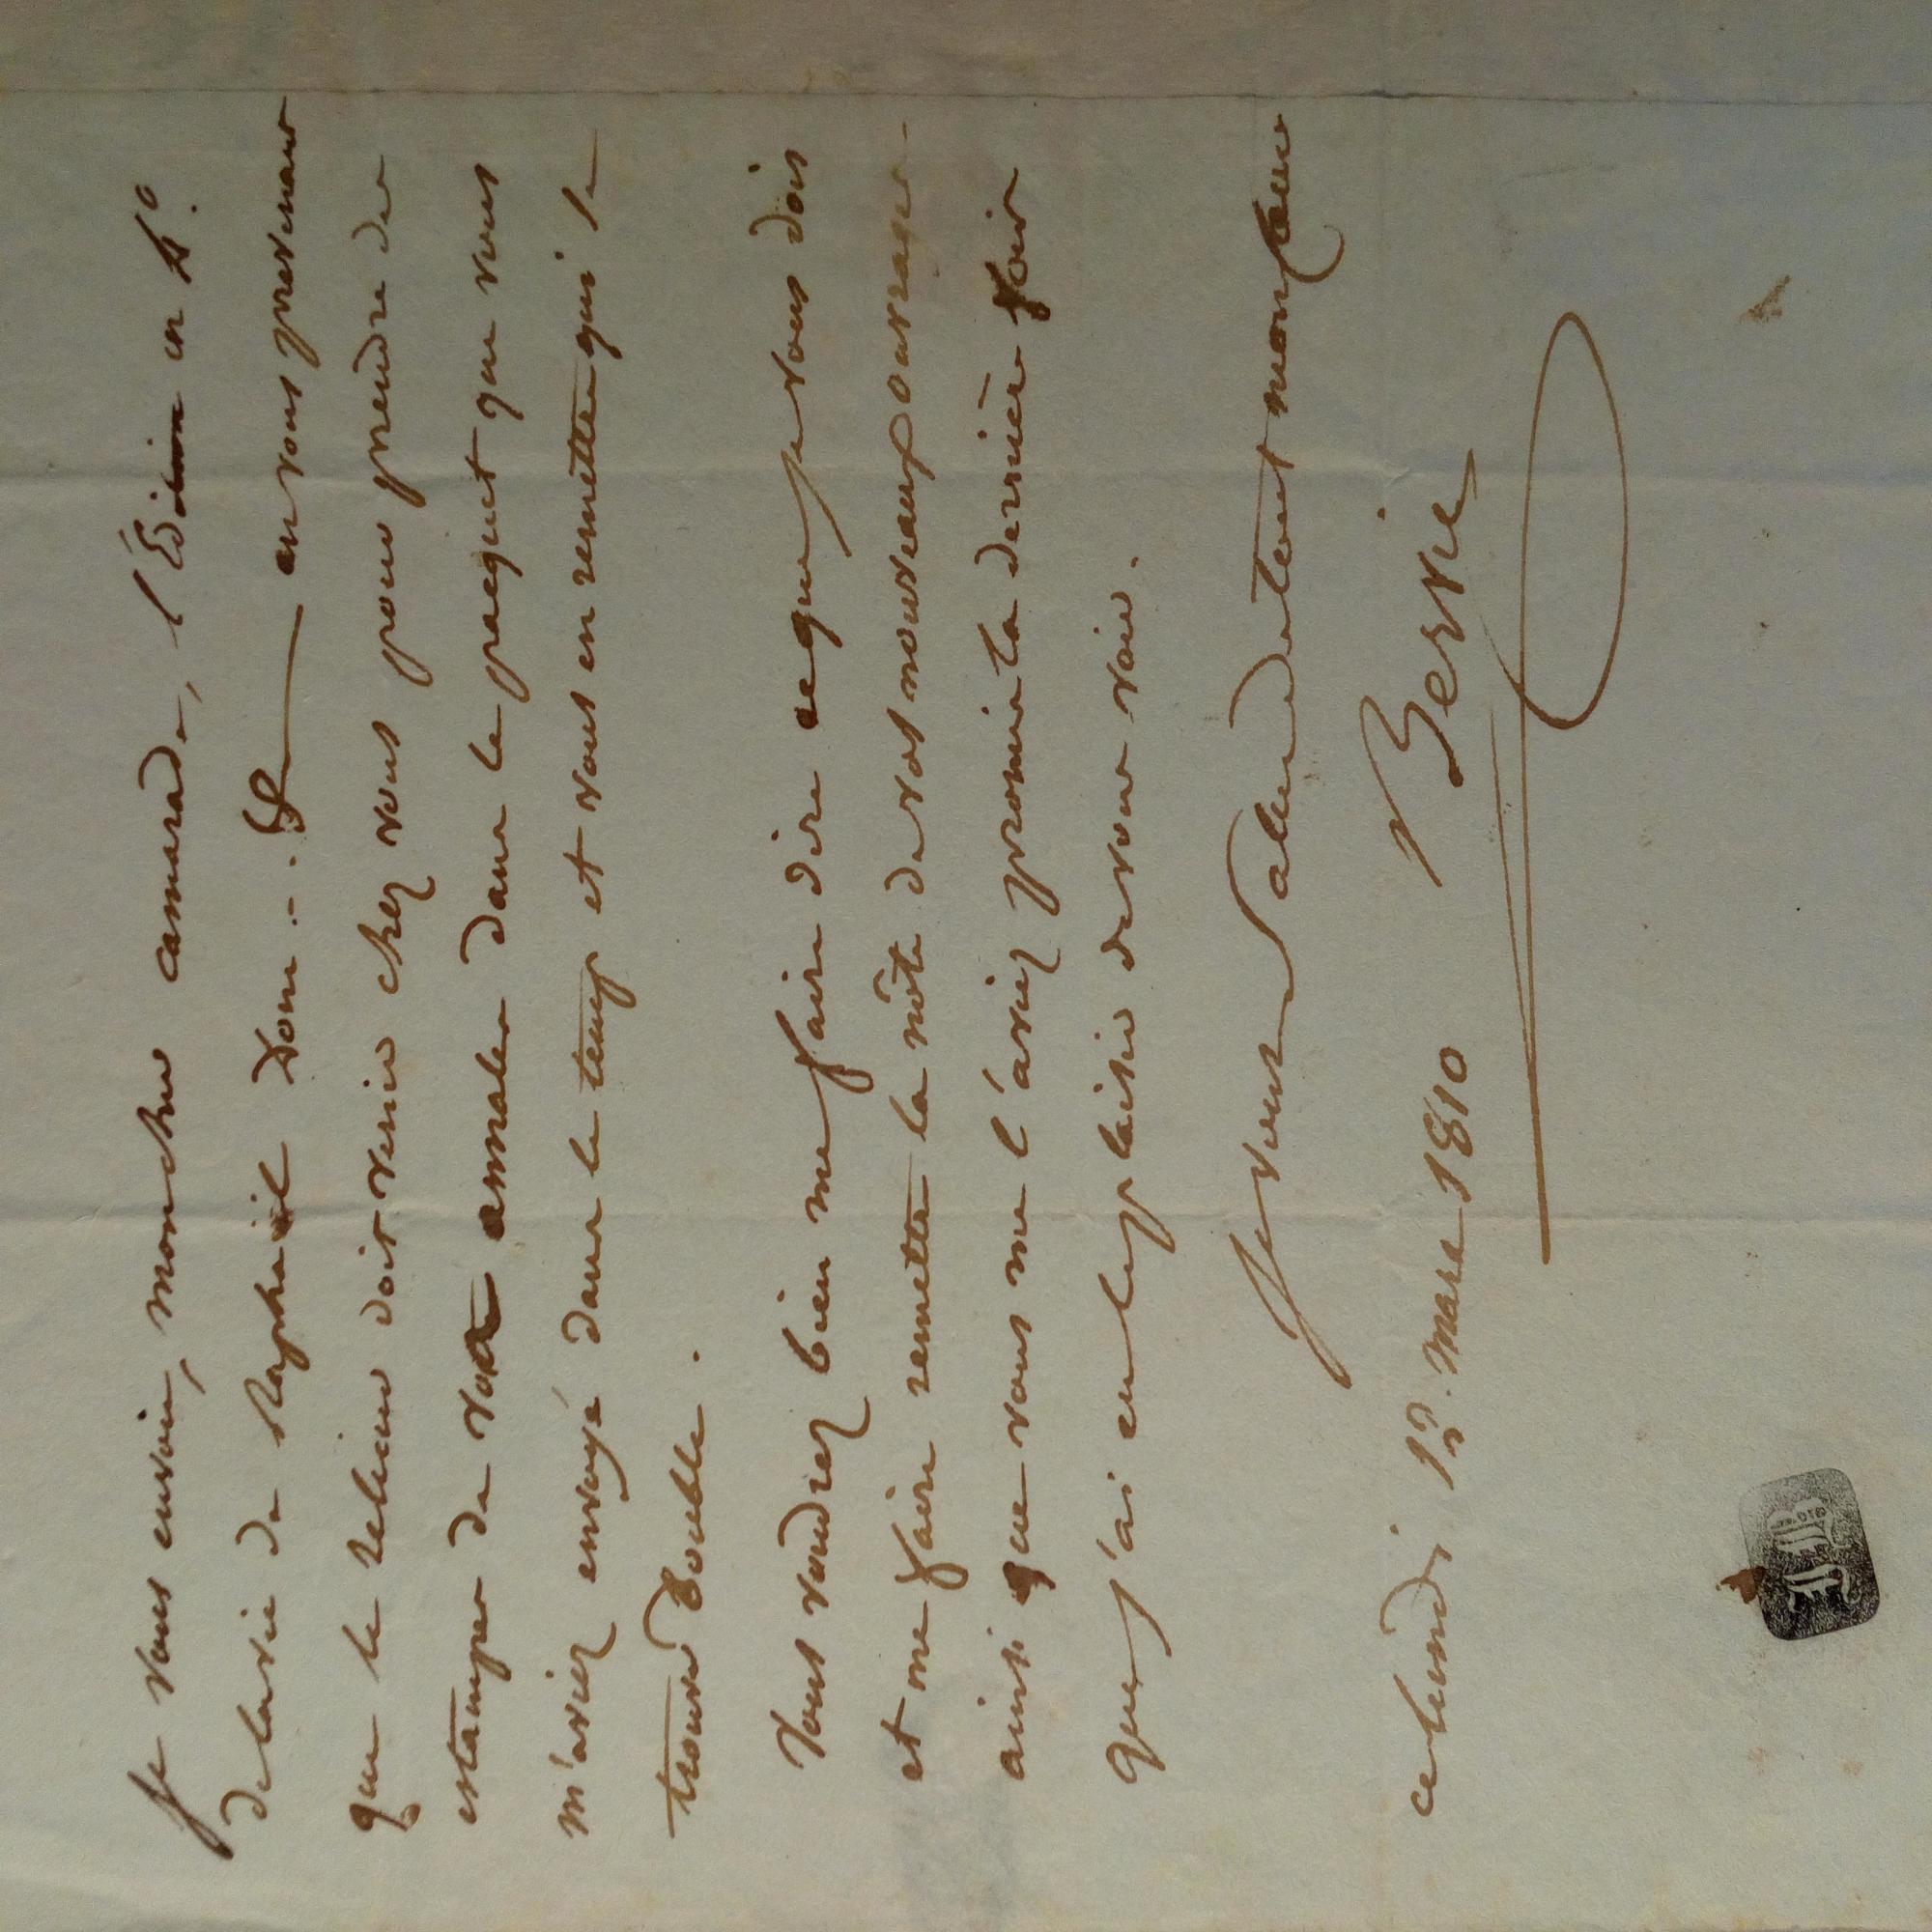 Je vous envoie, mon cher camarade, l'Edition in 4º.
de la vie de Raphaël
en vous prévenant
que le relieur doit venir chez vous pour prendre des
estampes de vos annales dans le pacquet que vous
m'aviez envoyé dans le temps et vous en remettre qui se
trouve Double.
Vous voudrez bien me faire dire ce que je vous dois
et me faire remettre la nôte de vos nouveaux ouvrages
ainsi que vous me l'aviez promis la dernière fois
que j'ai eu le plaisir de vous voir.
Je vous salue de tout mon cœur
Bervic
ce lundi 12. mars 1810